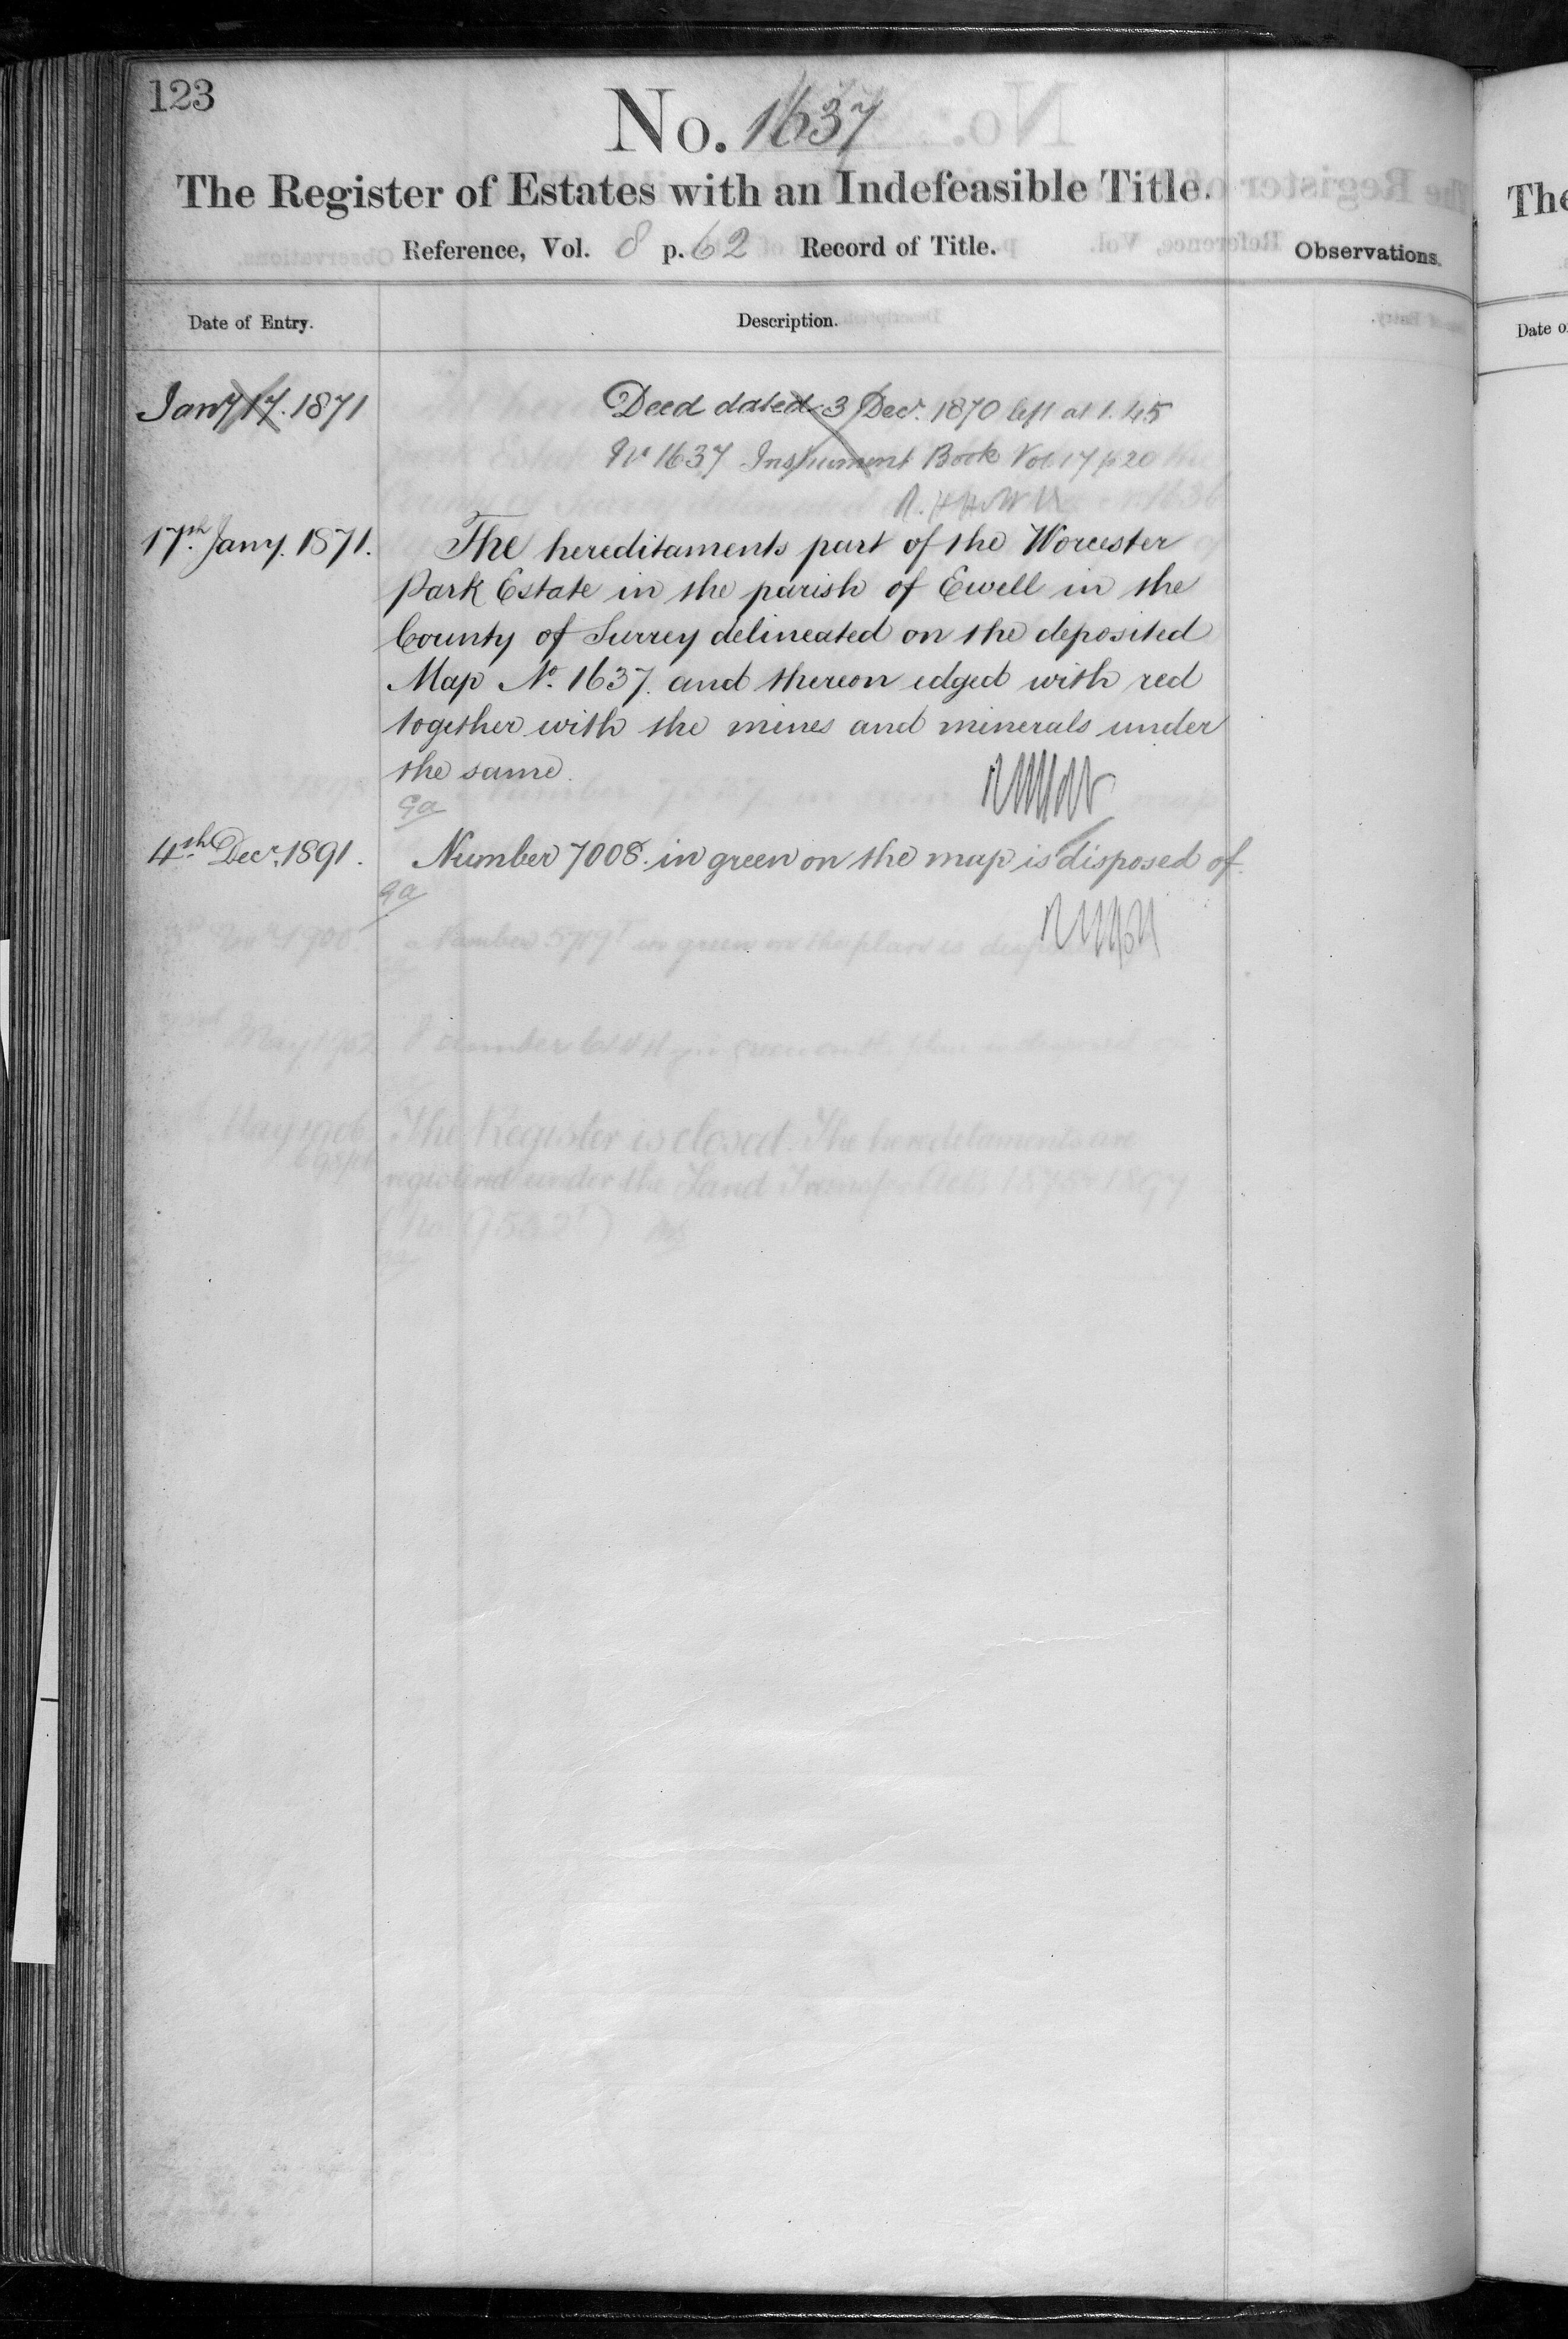 123
No. 1637
The Register of Estates with an Indefeasible Title.
Reference, Vol. 8 p. 62 Record of Title.
Observations.
Date of Entry.
Description.
Jany 17. 1871
Deed dated 3 Decr. 1870 left at 1.45
No 1637 Instrument Book Vol 17 p 20
17th Jany. 1871.
The hereditaments part of the Worcester
Park Estate in the parish of Ewell in the
County of Surrey delineated on the deposited
Map No. 1637. and thereon edged with red
together with the mines and minerals under
the same.
4th Decr. 1891.
Number 7008. in green on the map is disposed of.
in green on the plan is
May 1902
in green on the plan is disposed of
May 1906
The Register is closed. The hereditaments are
registered under the Land Transfer Acts 1875 & 1897
The
Date o